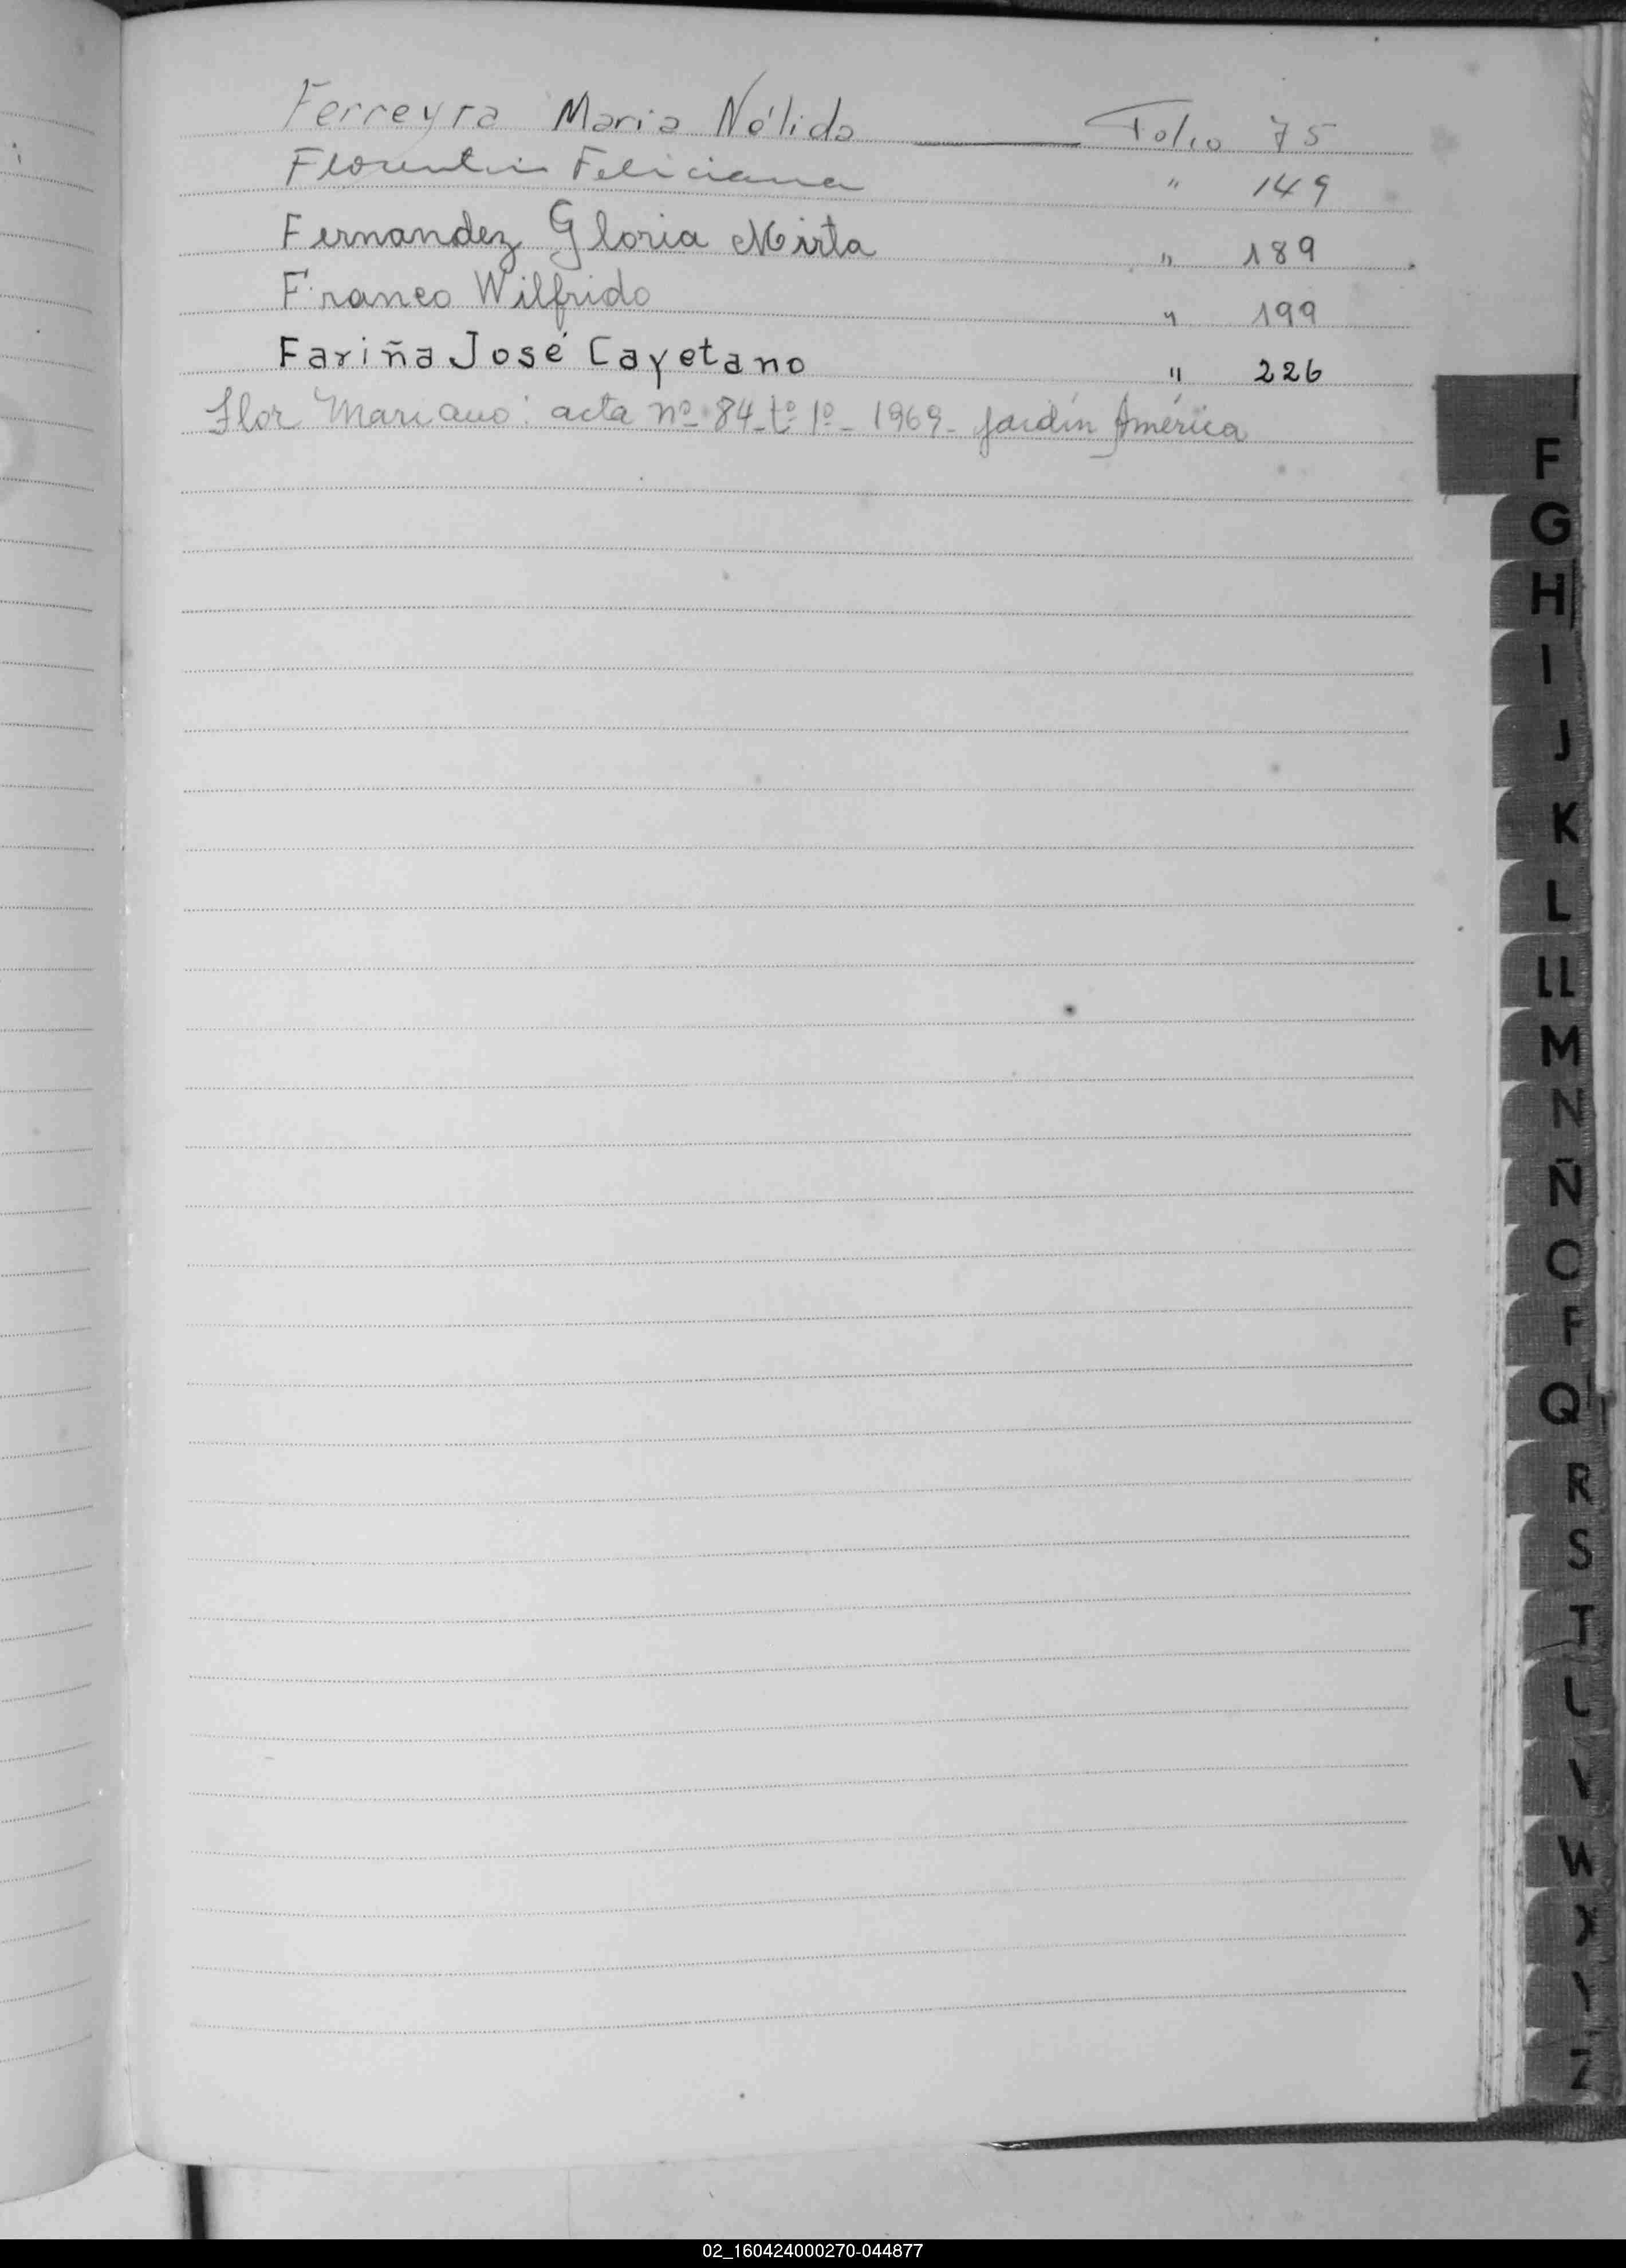 Ferreyra Maria Nélida Folio 75
Florentin Feliciana " 149
Fernandez Gloria Mirta " 189
Franco Wilfrido " 199
Fariña José Cayetano " 226
Flor Mariano: acta nº 84-tº 1º- 1969- Jardín América
F
G
H
I
J
K
L
LL
M
N
Ñ
O
Q
R
S
T
V
W
X
Y
Z
02_160424000270-044877